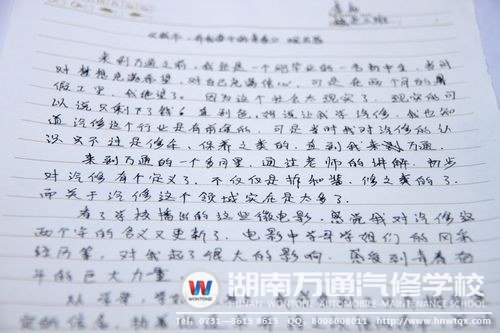 来到万通之前,我就是一个刚毕业的一名初中生,当时
对梦想充满希望,对自己充满信心,可是在两个月的暑
假工里,我绝望了。因为这个社会太现实了,现实的可
以说只剩下了钱。直到爸妈说让我学汽修,我也知
道汽修这个行业是有前途的,可是当时我对汽修的认
识只不过是修车,保养之类的,直到我来到万通。
来到万通的一个多月里,通过老师的讲解,初步
对汽修有个定义了,不仅仅是拆和装,修之类的了,
而关于汽修这个领域实在是太多了。
看了学校播出的这些微电影,虽说我对汽修这
两个字的含义又更新了,电影中学哥学姐们的风采
经历等,对我起了很大的影响,感受到青春
年的巨大力量
WONTONE
湖南万通汽修学校
HUNAN WONTONE AUTOMOBILE MAINTENANCE SCHOOL
Tel: 0731-8615 8615 QQ: 8008008011 http://www.hnwtqx.com